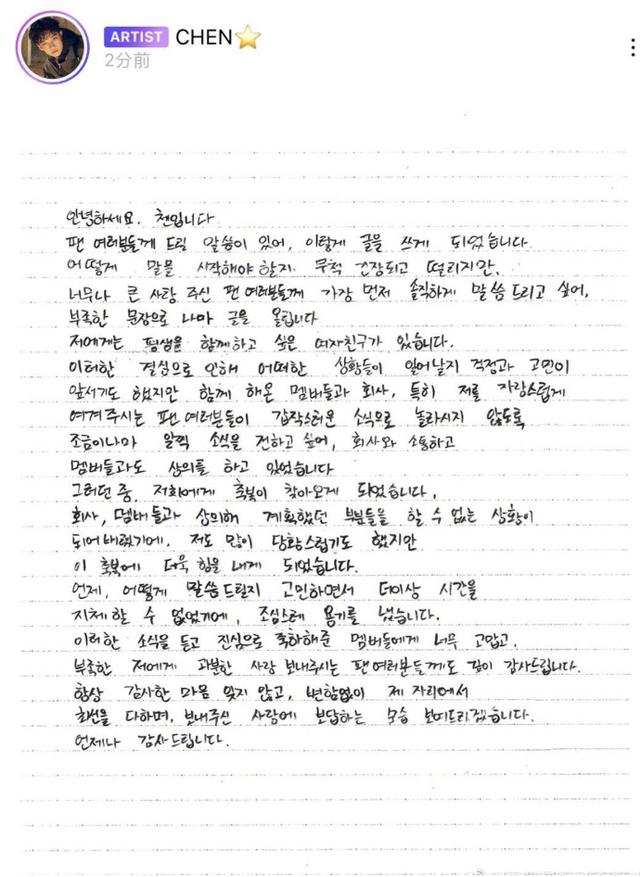 ARTIST CHEN⭐
2分前
안녕하세요. 첸입니다
팬 여러분들께 드릴 말씀이 있어, 이렇게 글을 쓰게 되었습니다.
어떻게 말을 시작해야 할지 무척 긴장되고 떨리지만,
너무나 큰 사랑 주신 팬 여러분들께 가장 먼저 솔직하게 말씀 드리고 싶어,
부족한 문장으로 나마 글을 올립니다
저에게는 평생을 함께하고 싶은 여자친구가 있습니다.
이러한 결심으로 인해 어떠한 상황들이 일어날지 걱정과 고민이
앞서기도 했지만 함께 해온 멤버들과 회사, 특히 저를 자랑스럽게
여겨주시는 팬 여러분들이 갑작스러운 소식으로 놀라시지 않도록
조금이나마 일찍 소식을 전하고 싶어, 회사와 소통하고
멤버들과도 상의를 하고 있었습니다
그러던 중, 저희에게 축복이 찾아오게 되었습니다.
회사, 멤버들과 상의해 계획했던 부분들을 할 수 없는 상황이
되어버렸기에, 저도 많이 당황스럽기도 했지만
이 축복에 더욱 힘을 내게 되었습니다.
언제, 어떻게 말씀드릴지 고민하면서 더이상 시간을
지체할 수 없었기에, 조심스레 용기를 냈습니다.
이러한 소식을 듣고 진심으로 축하해준 멤버들에게 너무 고맙고,
부족한 저에게 과분한 사랑 보내주시는 팬 여러분들께도 깊이 감사드립니다.
항상 감사한 마음 잊지 않고, 변함없이 제 자리에서
최선을 다하며, 보내주신 사랑에 보답하는 모습 보여드리겠습니다.
언제나 감사드립니다.